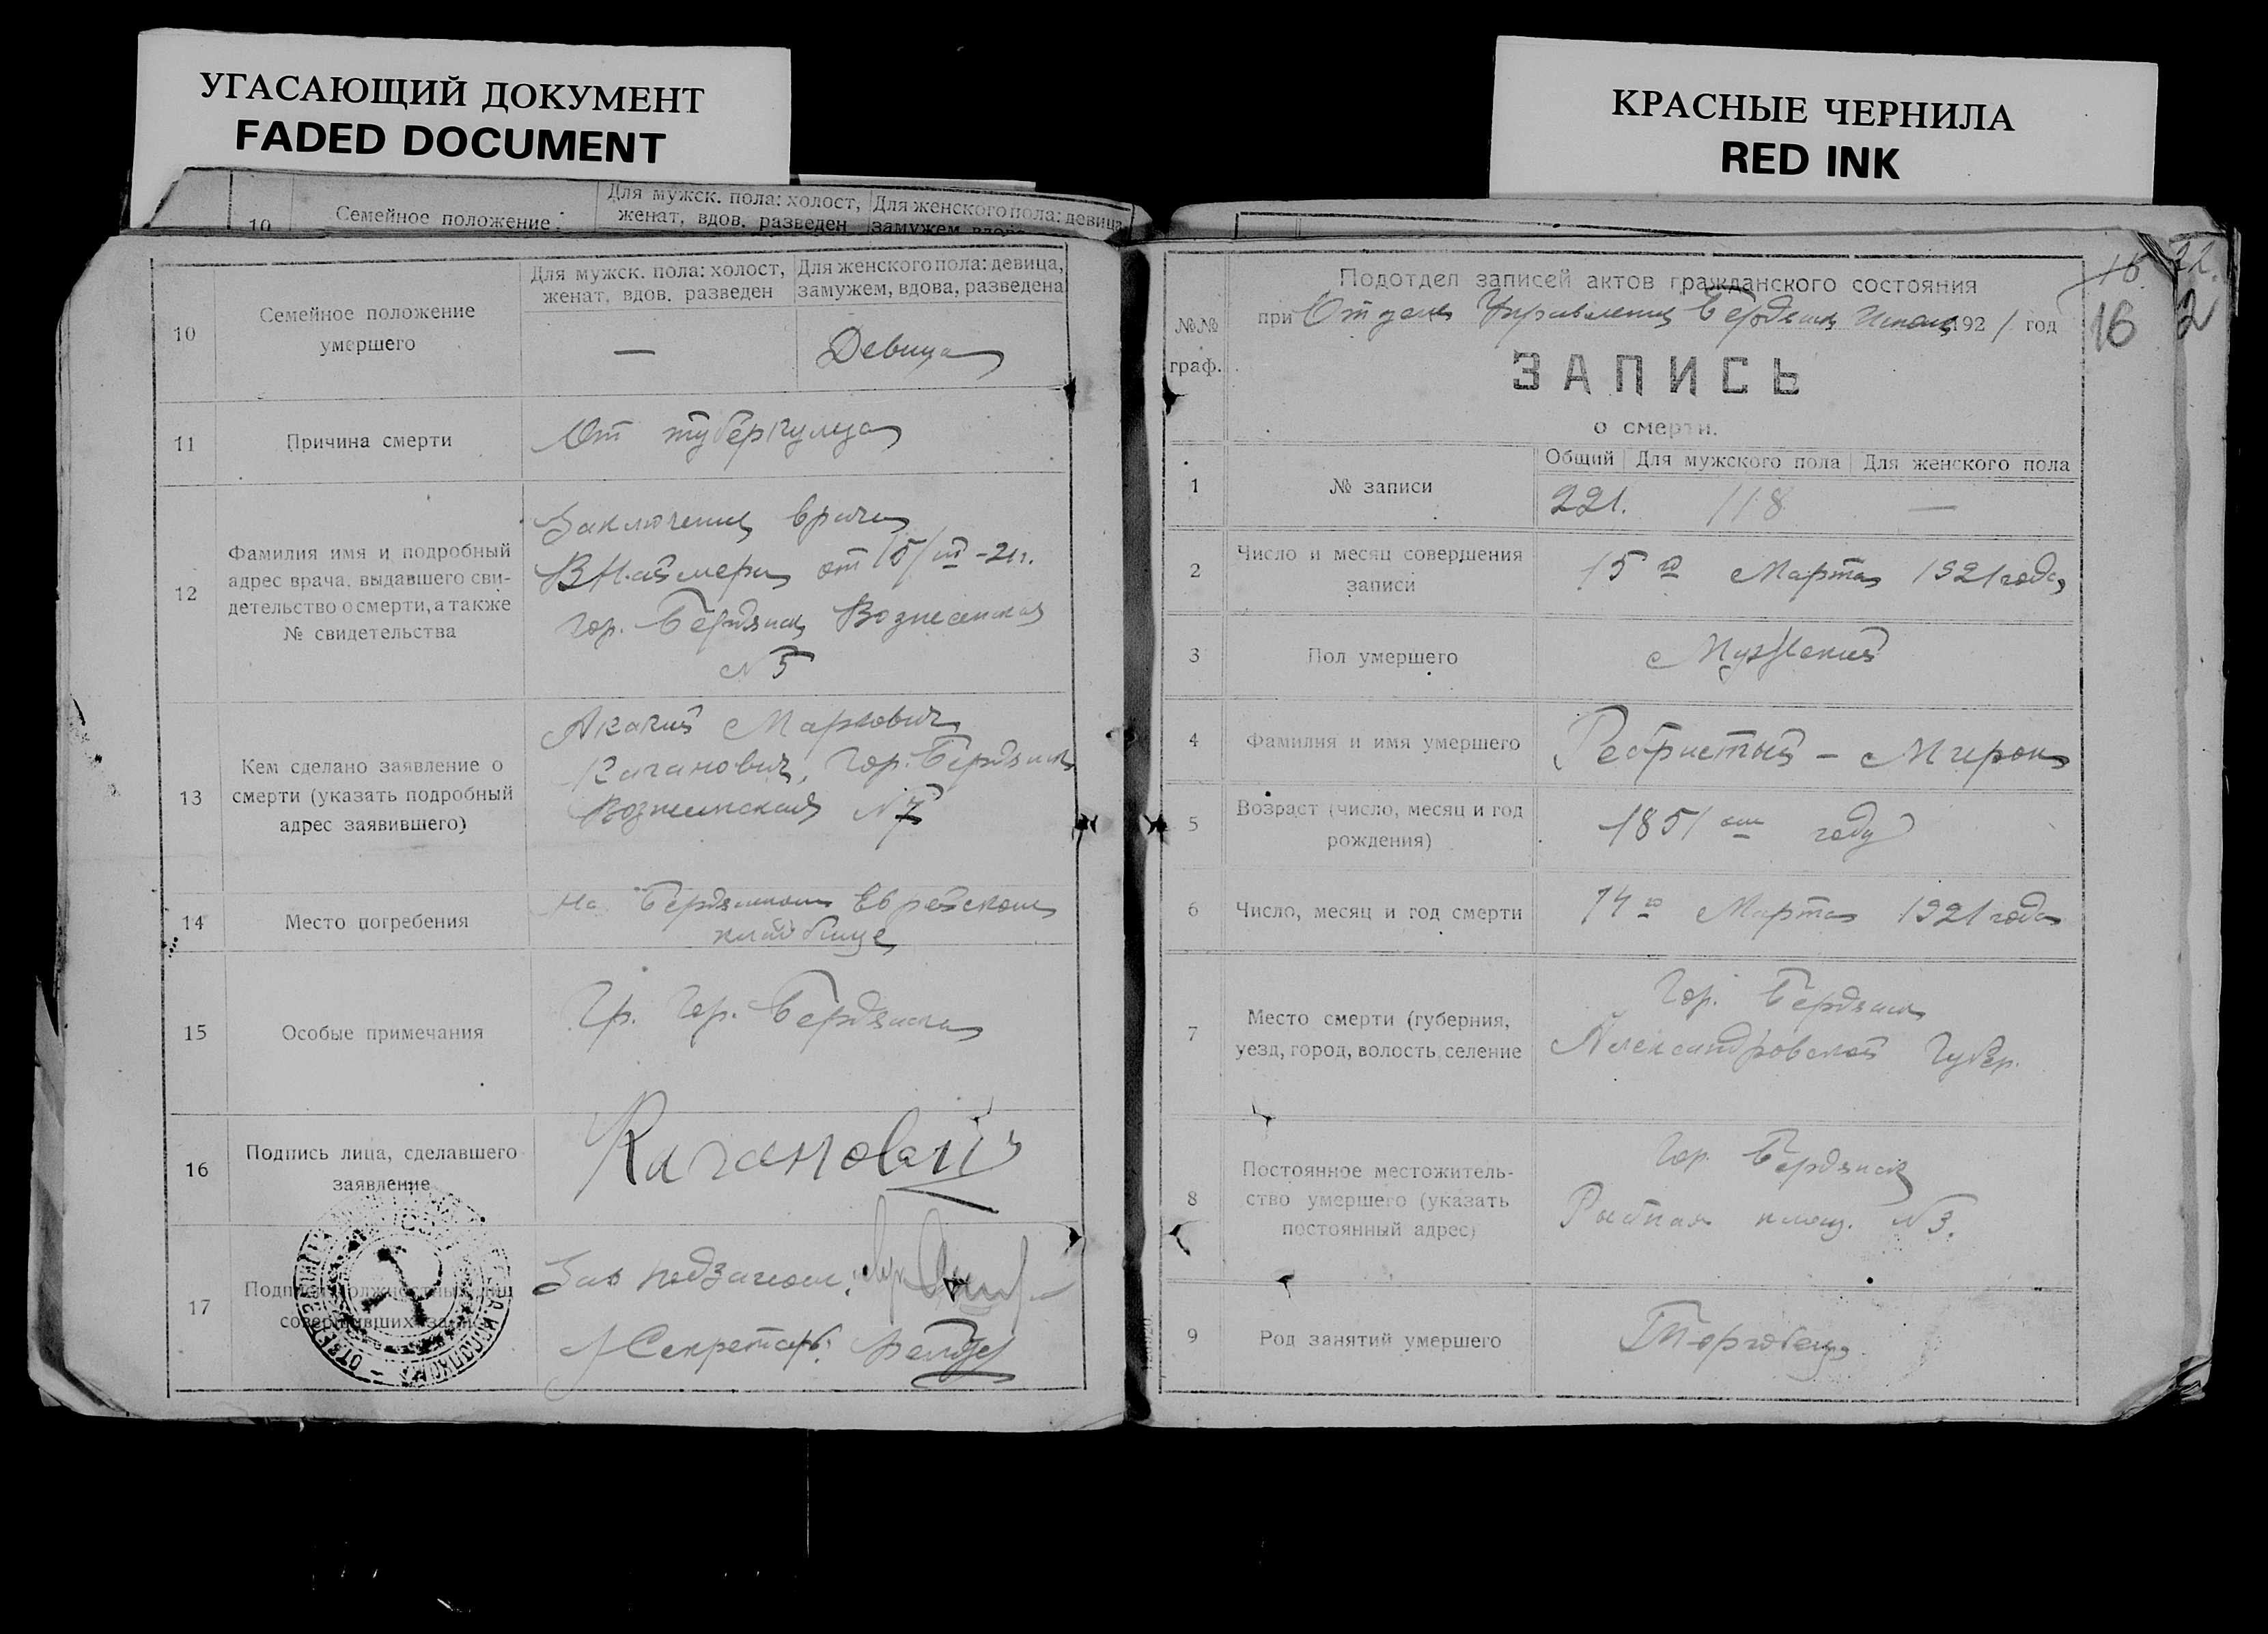 УГАСАЮЩИЙ ДОКУМЕНТ
FADED DOCUMENT
КРАСНЫЕ ЧЕРНИЛА
RED INK
10 Семейное положение Для мужск. пола: холост, женат, вдов. разведен Для женского пола: девица, замужем
10 Семейное положение умершего
Для мужск. пола: холост, женат, вдов. разведен
Для женского пола: девица, замужем, вдова, разведена
— Девица
11 Причина смерти
От туберкулеза
12 Фамилия имя и подробный
адрес врача, выдавшего сви-
детельство о смерти, а также
№ свидетельства
Заключение врача
от 15/III-21г.
гор. Бердянск Вознесенская
№ 5
13 Кем сделано заявление о
смерти (указать подробный
адрес заявившего)
Акакий Маркович
Каганович, гор. Бердянск
Вознесенская № 7
14 Место погребения
на Бердянском Еврейском
кладбище
15 Особые примечания
Гр. гор. Бердянска
16 Подпись лица, сделавшего
заявление
Каганович
17 Подписи должностных лиц
совершивших запись
Зав подзагсом:
Секретарь:
Подотдел записей актов гражданского состояния
при Отделе Управления Бердянск 1921 год
16 22.
16 2
№№
граф.
ЗАПИСЬ
о смерти.
1 № записи
Общий Для мужского пола Для женского пола
221. 118 —
2 Число и месяц совершения
записи
15го Марта 1921 года
3 Пол умершего
Мужский
4 Фамилия и имя умершего
Ребристый - Мирон
5 Возраст (число, месяц и год
рождения)
1851 ом году
6 Число, месяц и год смерти
14го Марта 1921 года
7 Место смерти (губерния,
уезд, город, волость, селение
Гор. Бердянск
Александровской Губер.
8 Постоянное местожитель-
ство умершего (указать
постоянный адрес)
Гор. Бердянск
Рыбная площ. № 3.
9 Род занятий умершего
Торговец